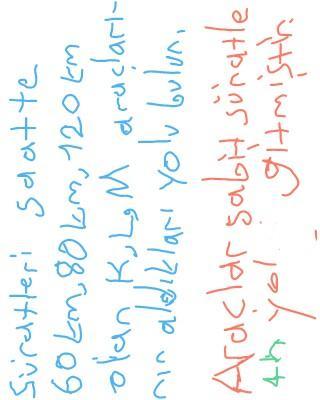 Süratleri saatte
60 km, 80 km, 120 km
olan K, L, M araçları-
nın aldıkları yolu bulun.
Araçlar sabit süratle
4h yol gitmiştir.